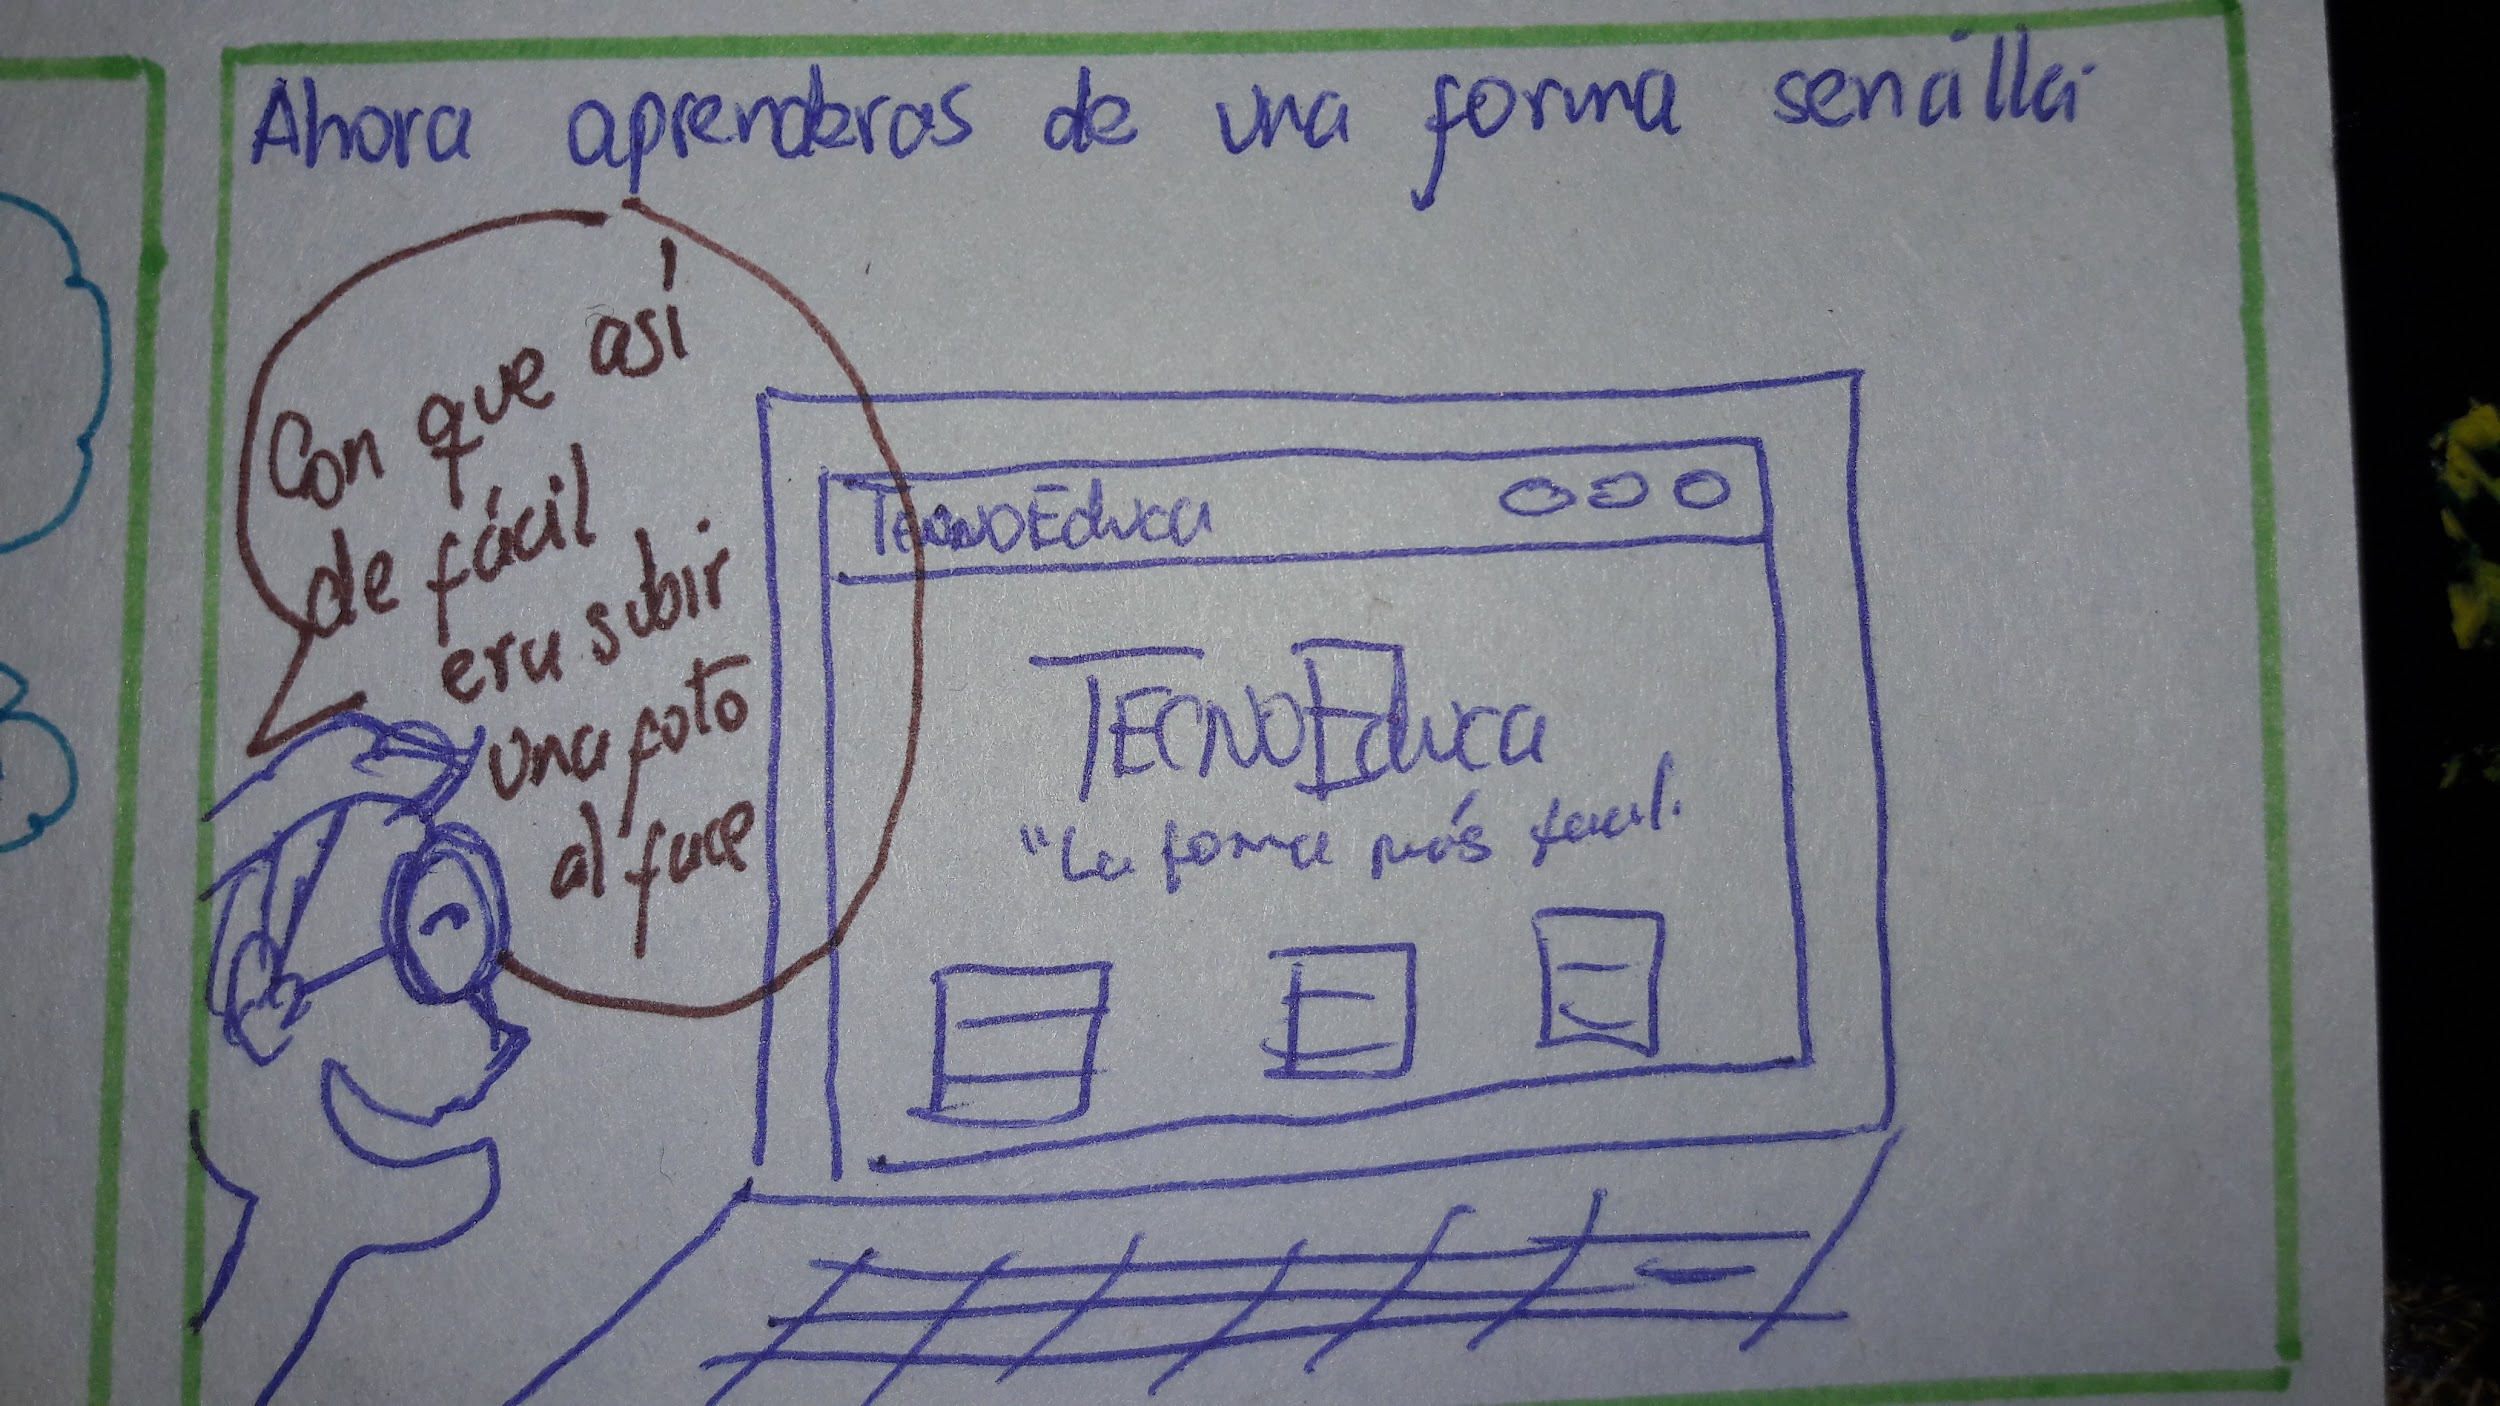 Ahora aprenderas de una forma sencilla.
Con que así
de fácil
era subir
una foto
al face
TECNOEduca
TECNOEduca
"La forma más facil.